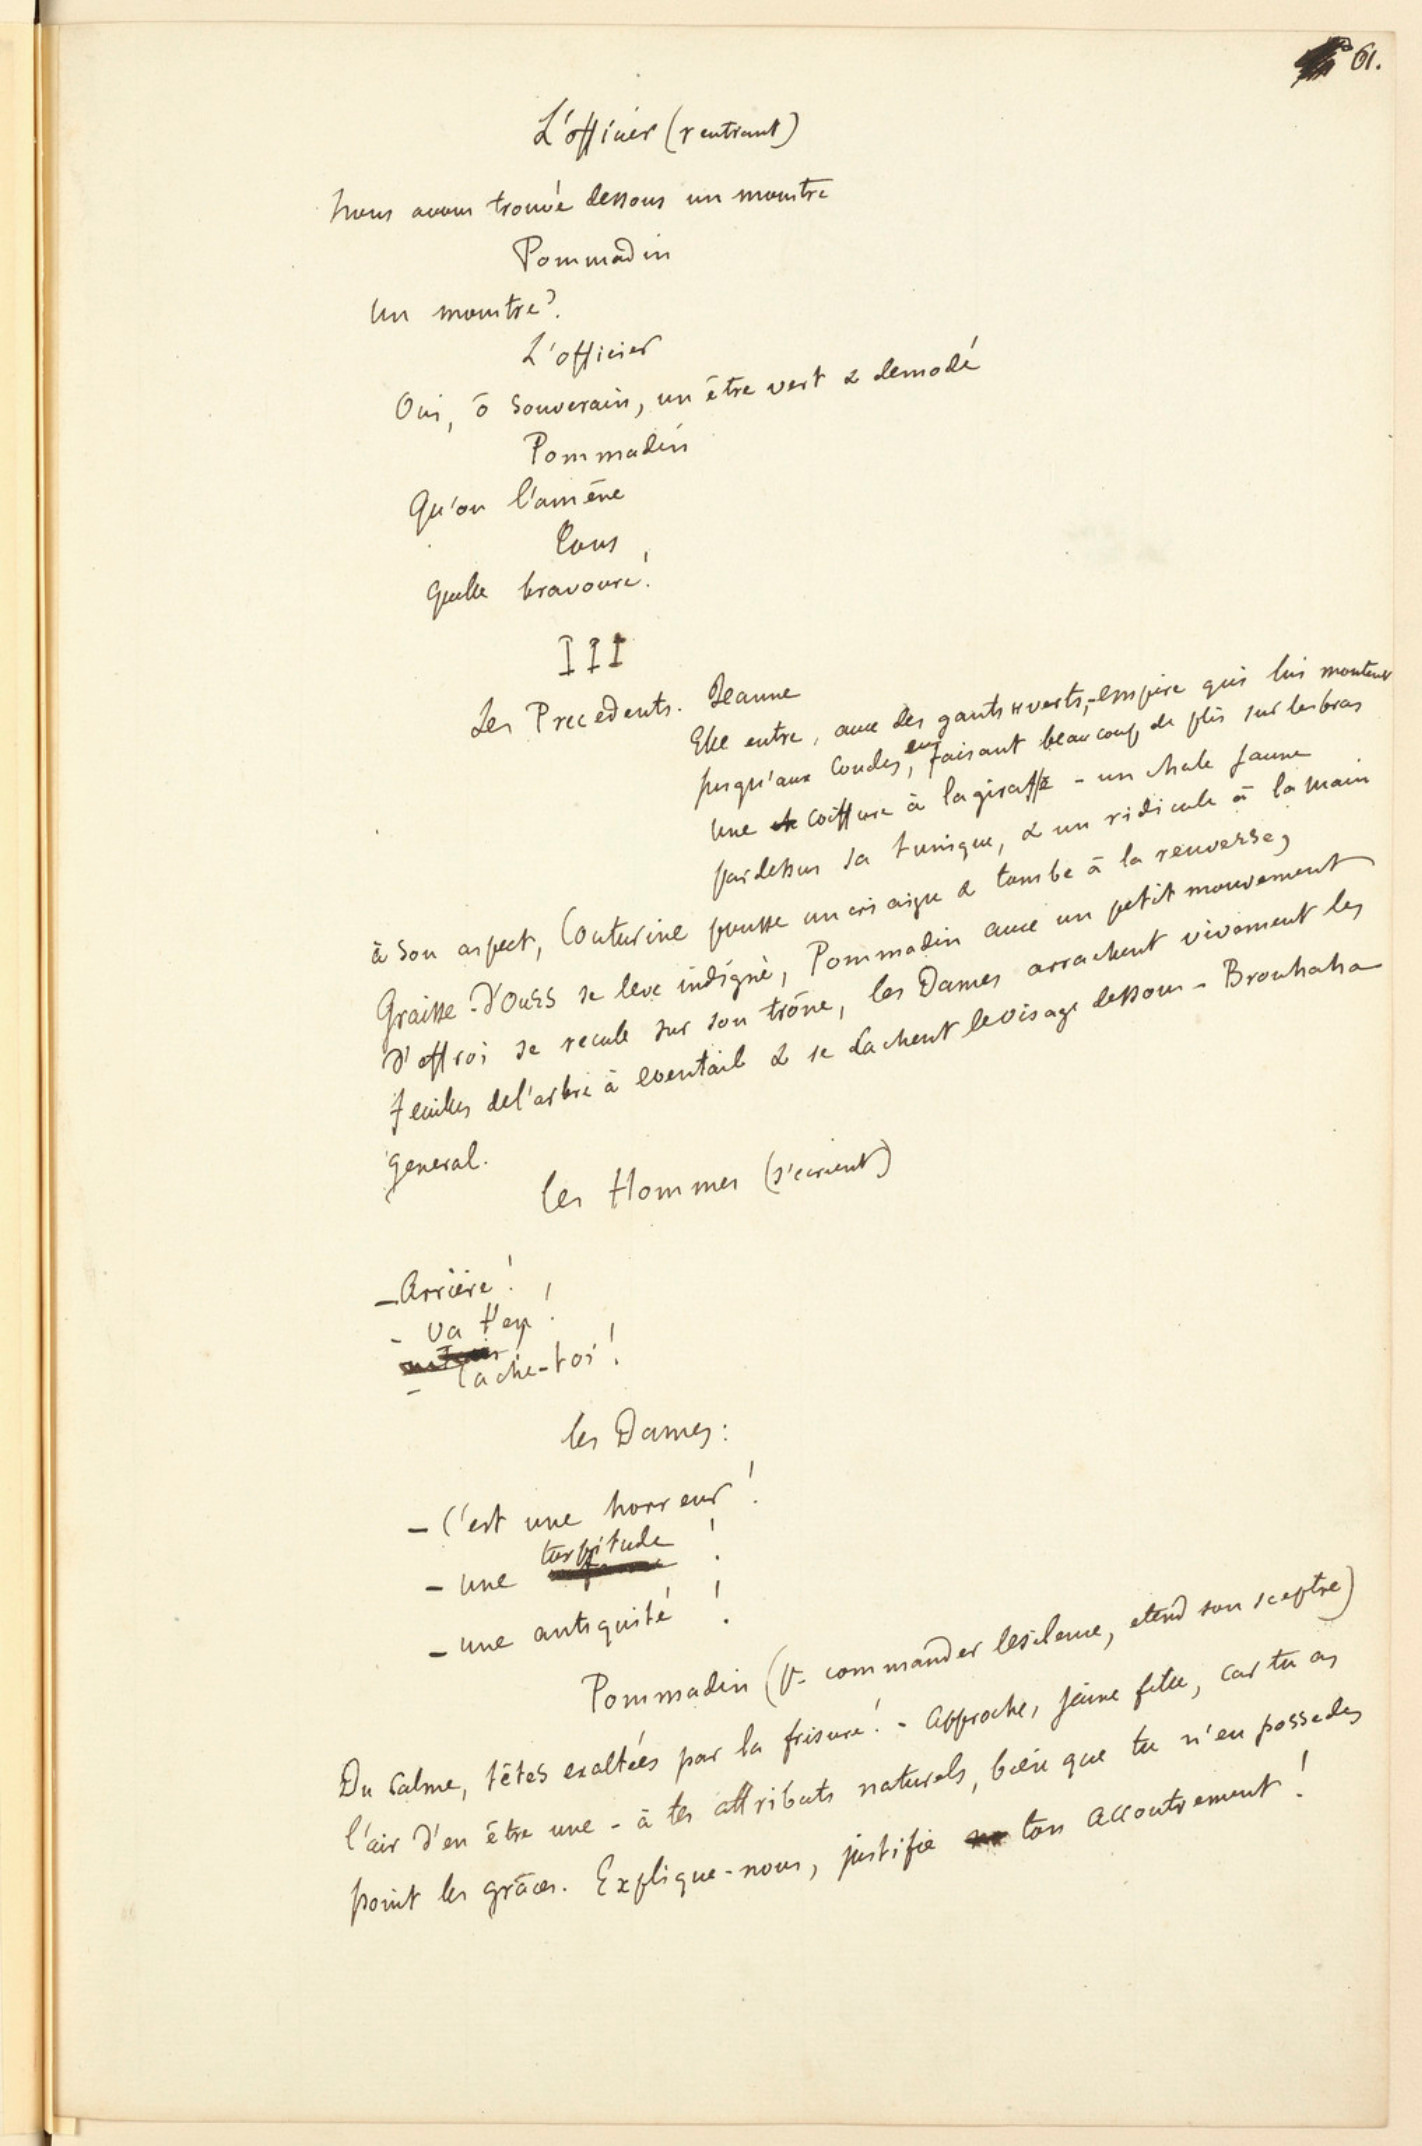 61.
L'officier (rentrant)
Nous avons trouvé dessous un monstre
Pommadin
Un monstre?
L'officier
Oui, ô Souverain, un être vert & demodé
Pommadin
Qu'on l'amène
Tous
Quelle bravoure!
III
Les Precedents. Jeanne
Elle entre, avec des gants verts, empire qui lui montent
jusqu'aux coudes, en faisant beaucoup de plis sur les bras
une coiffure à la giraffe - un chale jaune
pardessus sa tunique, & un ridicule à la main
à son aspect, Couturine pousse un cri aigu & tombe à la renverse,
Graisse-d'Ours se leve indigné, Pommadin avec un petit mouvement
d'effroi se recule sur son trône, les Dames arrachent vivement les
feuilles de l'arbre à eventail & se cachent le visage dessous - Brouhaha
general.
les Hommes (s'ecrient)
- Arrière!
- Va t'en!
- Cache-toi!
les Dames:
- C'est une horreur!
- une turpitude!
- une antiquité!
Pommadin (pr commander le silence, etend son sceptre)
Du calme, têtes exaltées par la frisure! - Approche, jeune fille, car tu as
l'air d'en être une - à tes attributs naturels, bien que tu n'en possedes
point les grâces. Explique-nous, justifie ton accoutrement!